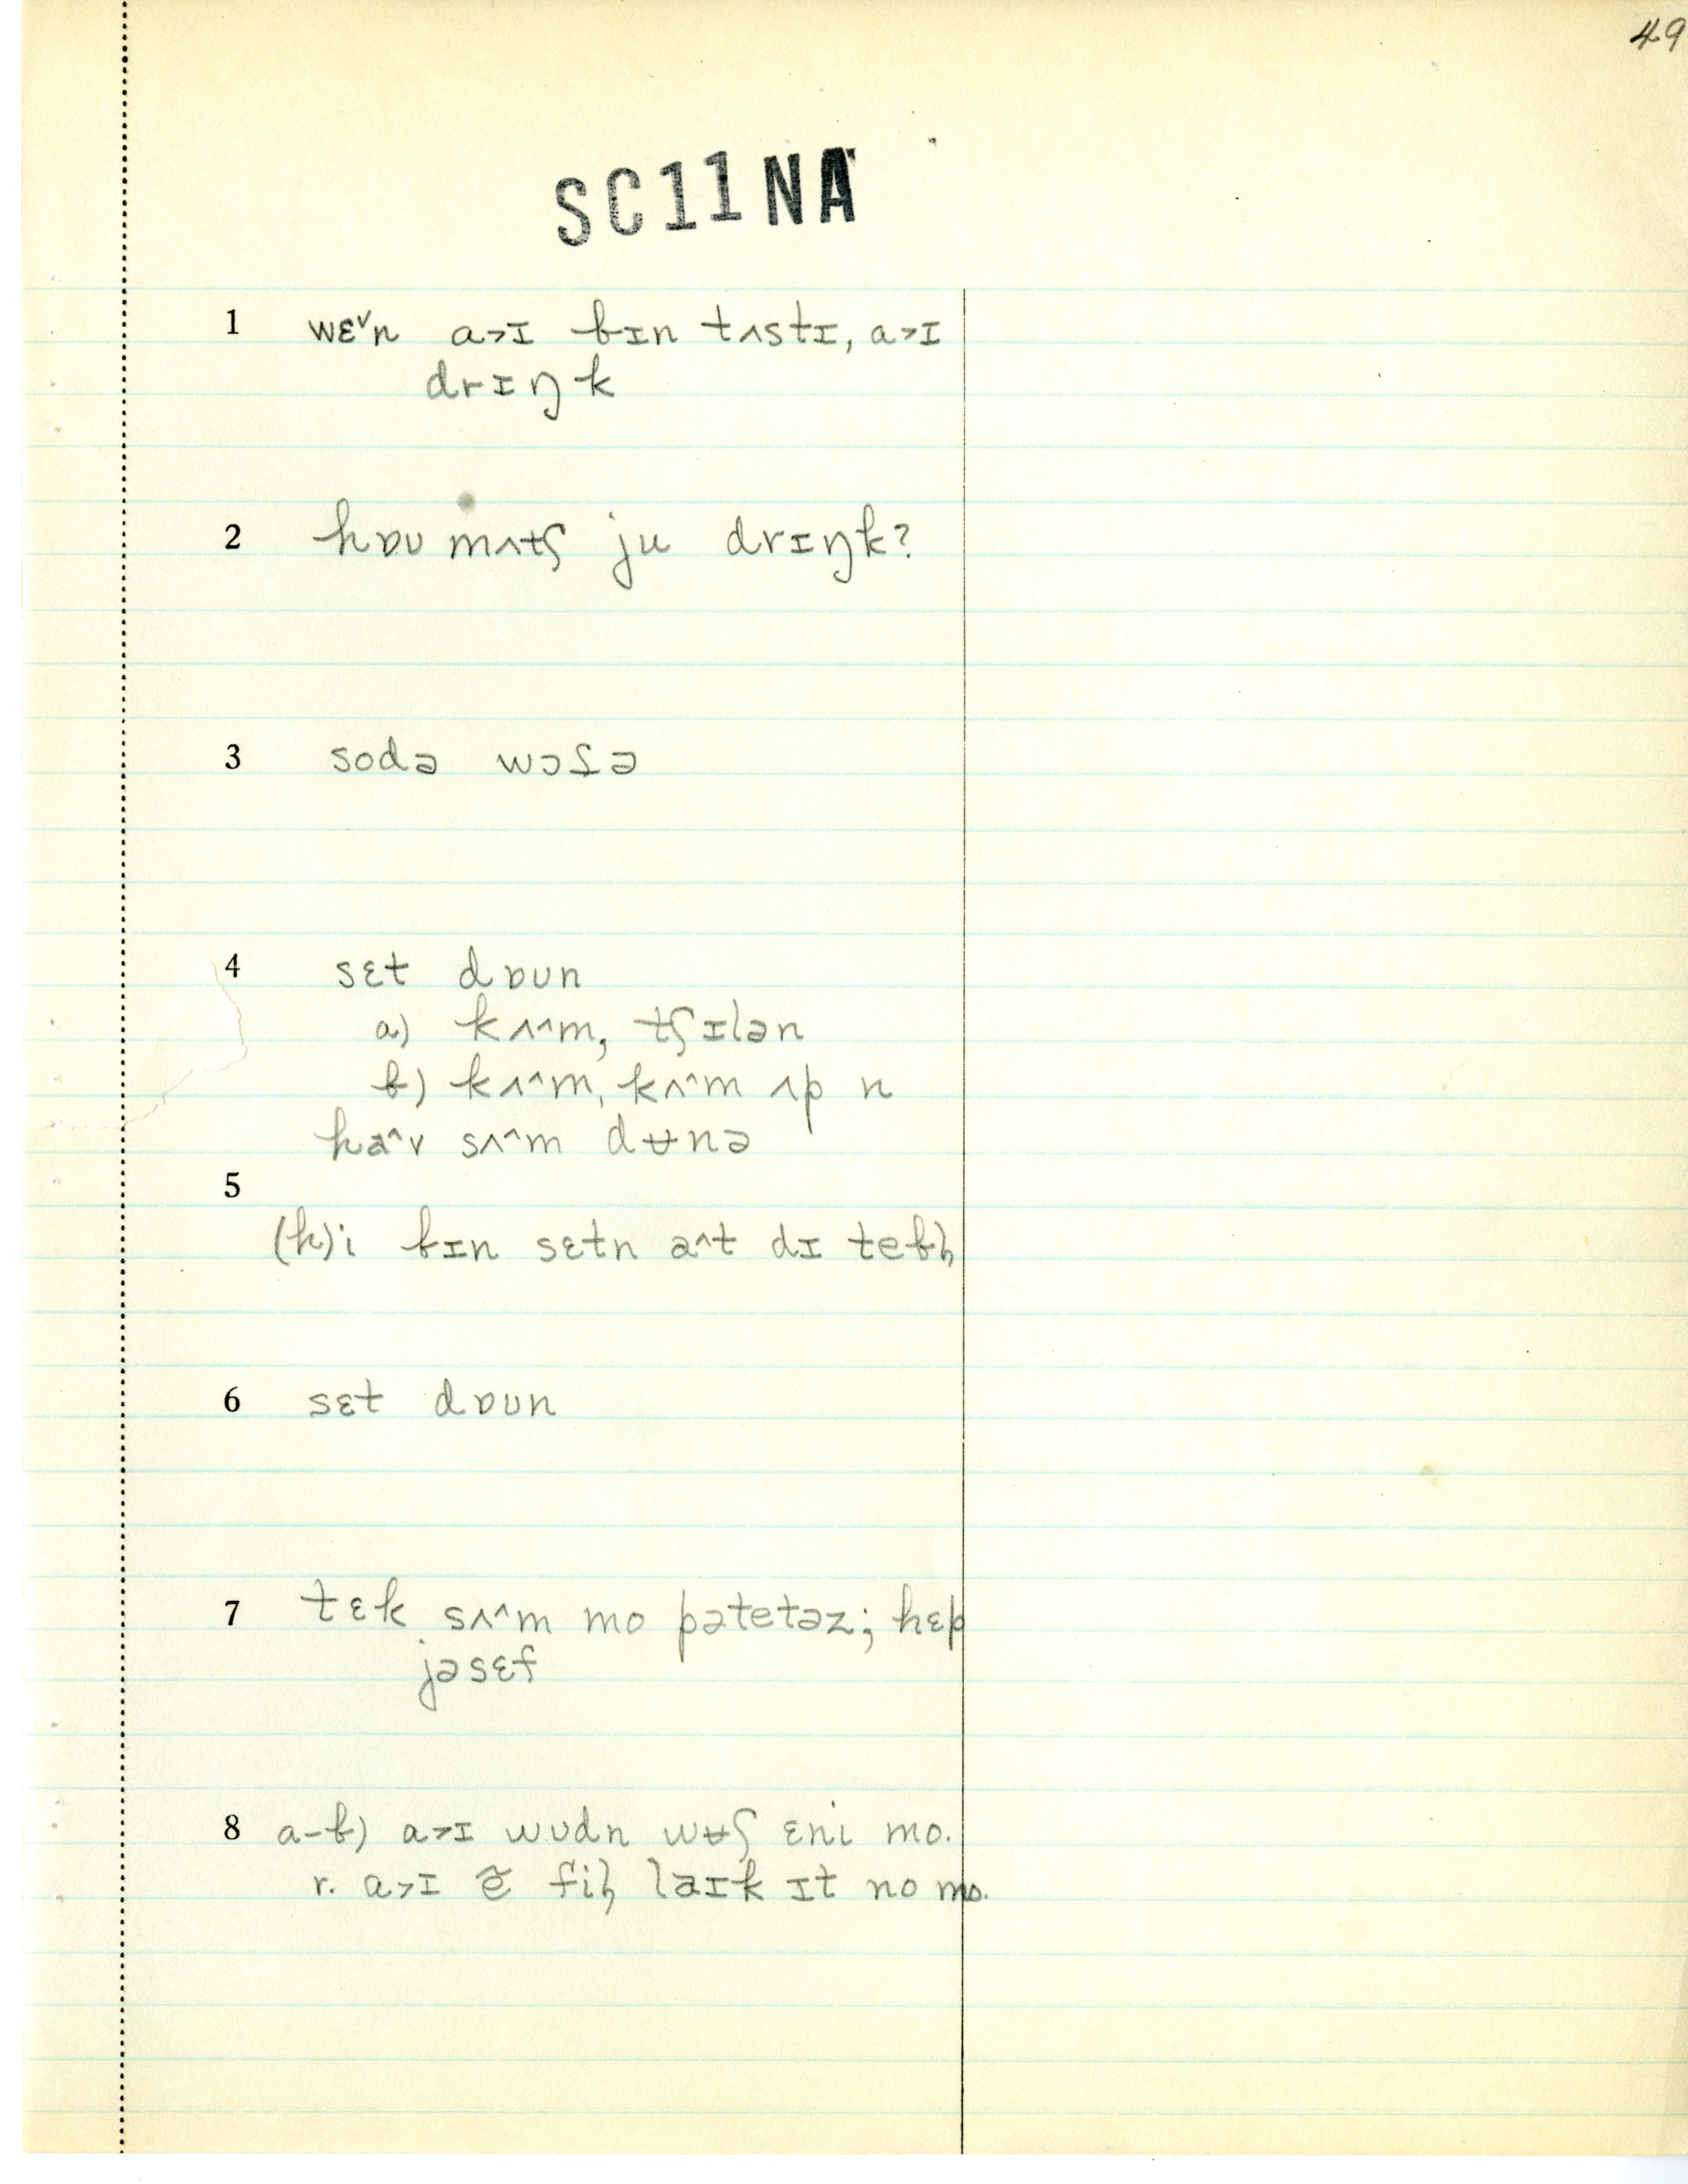 49
SC11NA
1 wɛ˅n a>ɪ bɪn tʌstɪ, a>ɪ
drɪŋk
2 hɒʊ mʌtʃ ju drɪŋk?
3 sodə wɔɾə
4 sɛt dɒʊn
a) kʌ^m, tʃɪlən
b) kʌ^m, kʌ^m ʌp n
ha^v sʌ^m dʉnə
5
(h)i bɪn sɛtn a^t dɪ tebl̩
6 sɛt dɒʊn
7 tɛk sʌ^m mo pətetəz; hɛp
jəsɛf
8 a-b) a>ɪ wʊdn wʉʃ ɛni mo.
r. a>ɪ ẽ fil̩ laɪk ɪt no mo.